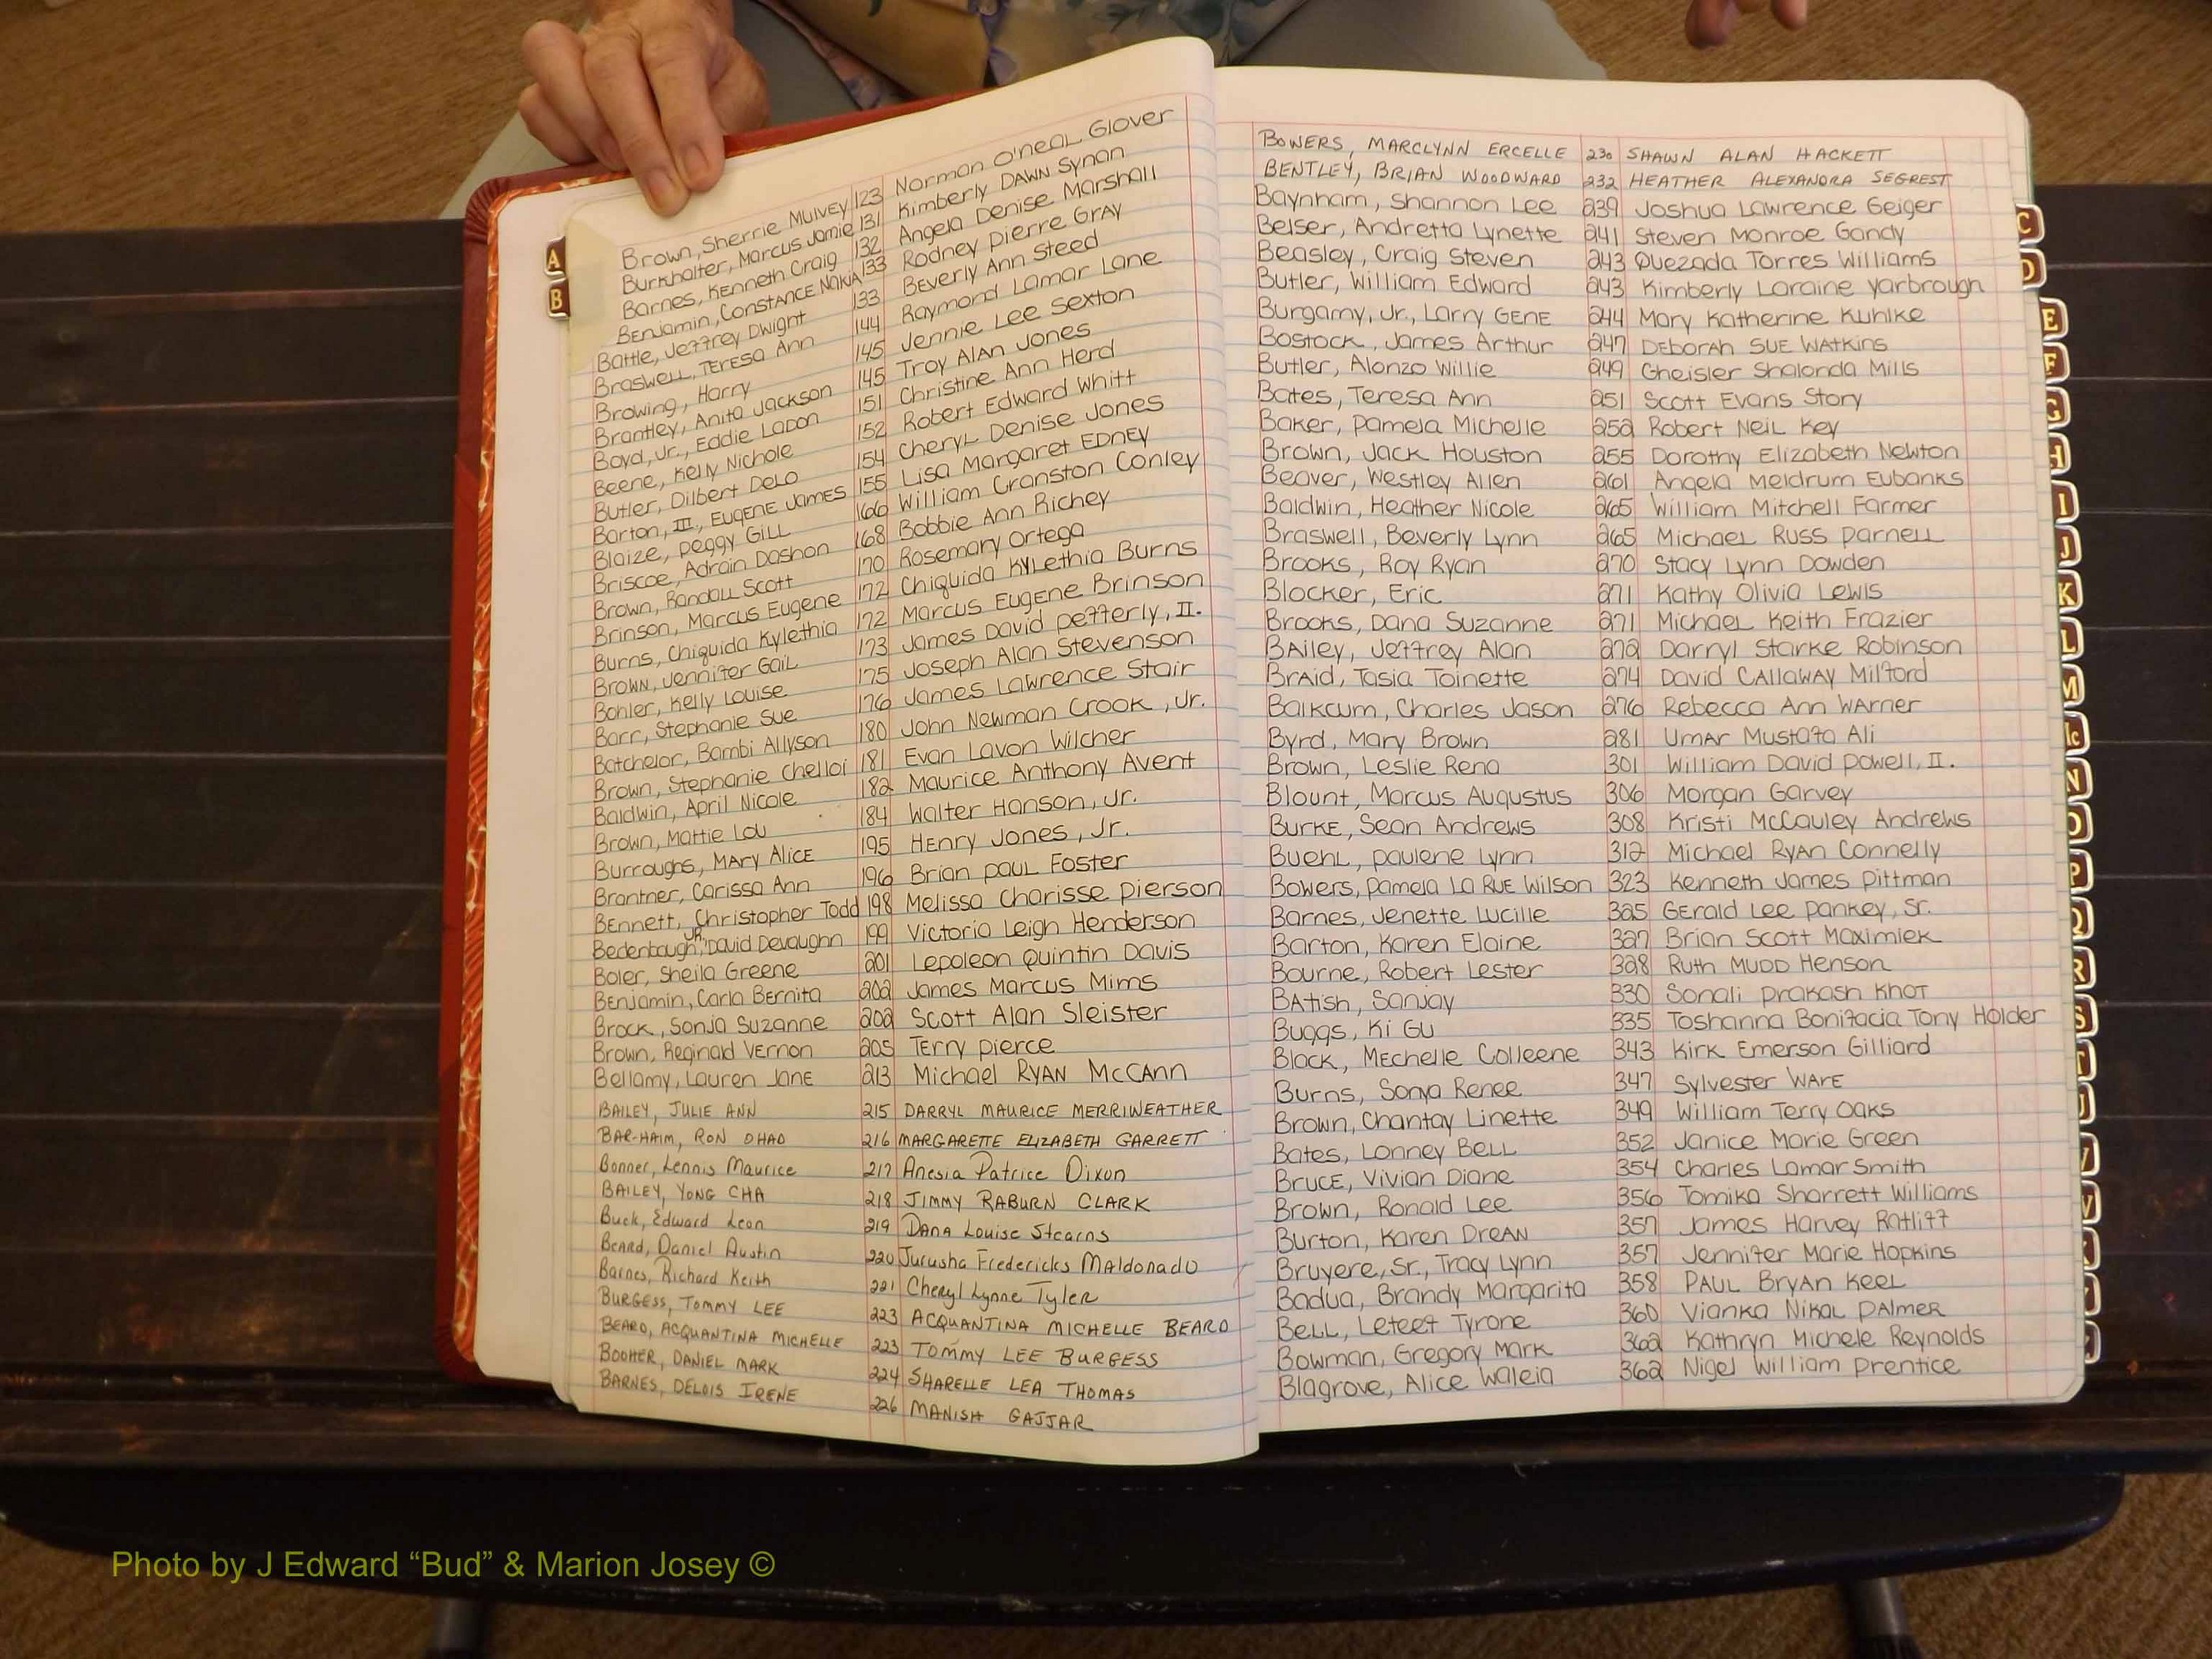 Brown, Sherrie Mulvey 123 Norman O'Neal Glover
Burkhalter, Marcus Jamie 131 Kimberly DAWN Synan
Barnes, Kenneth Craig 132 Angela Denise Marshall
Benjamin, Constance Nakia 133 Rodney Pierre Gray
Battle, Jeffrey Dwight 133 Beverly Ann Steed
Braswell, Teresa Ann 144 Raymond Lamar Lane
Browing, Harry 145 Jennie Lee Sexton
Brantley, Anita Jackson 145 Troy Alan Jones
Boyd, Jr., Eddie Ladon 151 Christine Ann Herd
Beene, Kelly Nichole 152 Robert Edward Whitt
Butler, Dilbert Delo 154 Cheryl Denise Jones
Barton, III., Eugene James 155 Lisa Margaret Edney
Blaize, Peggy Gill 166 William Cranston Conley
Briscoe, Adrain Dashon 168 Bobbie Ann Richey
Brown, Randall Scott 170 Rosemary Ortega
Brinson, Marcus Eugene 172 Chiquida Kylethia Burns
Burns, Chiquida Kylethia 172 Marcus Eugene Brinson
Brown, Jennifer Gail 173 James David Pefferly, II.
Bohler, Kelly Louise 175 Joseph Alan Stevenson
Barr, Stephanie Sue 176 James Lawrence Stair
Batchelor, Bambi Allyson 180 John Newman Crook, Jr.
Brown, Stephanie Chelloi 181 Evan Lavon Wilcher
Baldwin, April Nicole 182 Maurice Anthony Avent
Brown, Mattie Lou 184 Walter Hanson, Jr.
Burroughs, Mary Alice 195 Henry Jones, Jr.
Brantner, Carissa Ann 196 Brian Paul Foster
Bennett, Christopher Todd 198 Melissa Charisse Pierson
Bedenbaugh, JR. David Devaughn 199 Victoria Leigh Henderson
Boler, Sheila Greene 201 Lepoleon Quintin Davis
Benjamin, Carla Bernita 202 James Marcus Mims
Brock, Sonja Suzanne 202 Scott Alan Sleister
Brown, Reginald Vernon 205 Terry Pierce
Bellamy, Lauren Jane 213 Michael Ryan McCann
BAILEY, JULIE ANN 215 DARRYL MAURICE MERRIWEATHER
BAR-HAIM, RON OHAD 216 MARGARETTE ELIZABETH GARRETT
Bonner, Lennis Maurice 217 Anesia Patrice Dixon
BAILEY, YONG CHA 218 JIMMY RABURN CLARK
Buck, Edward Leon 219 Dana Louise Stearns
Beard, Daniel Austin 220 Jurusha Fredericks Maldonado
Barnes, Richard Keith 221 Cheryl Lynne Tyler
BURGESS, TOMMY LEE 223 ACQUANTINA MICHELLE BEARD
BEARD, ACQUANTINA MICHELLE 223 TOMMY LEE BURGESS
BOOHER, DANIEL MARK 224 SHARELLE LEA THOMAS
BARNES, DELOIS IRENE 226 MANISH GAJJAR
BOWERS, MARCLYNN ERCELLE 230 SHAWN ALAN HACKETT
BENTLEY, BRIAN WOODWARD 232 HEATHER ALEXANDRA SEGREST
Baynham, Shannon Lee 239 Joshua Lawrence Geiger
Belser, Andretta Lynette 241 Steven Monroe Gandy
Beasley, Craig Steven 243 Quezada Torres Williams
Butler, William Edward 243 Kimberly Loraine Yarbrough
Burgamy, Jr., Larry Gene 244 Mary Katherine Kuhlke
Bostock, James Arthur 247 Deborah Sue Watkins
Butler, Alonzo Willie 249 Gheisler Shalonda Mills
Bates, Teresa Ann 251 Scott Evans Story
Baker, Pamela Michelle 252 Robert Neil Key
Brown, Jack Houston 255 Dorothy Elizabeth Newton
Beaver, Westley Allen 261 Angela Meldrum Eubanks
Baldwin, Heather Nicole 265 William Mitchell Farmer
Braswell, Beverly Lynn 265 Michael Russ Parnell
Brooks, Roy Ryan 270 Stacy Lynn Dowden
Blocker, Eric 271 Kathy Olivia Lewis
Brooks, Dana Suzanne 271 Michael Keith Frazier
Bailey, Jeffrey Alan 272 Darryl Starke Robinson
Braid, Tasia Toinette 274 David Callaway Milford
Balkcum, Charles Jason 276 Rebecca Ann Warner
Byrd, Mary Brown 281 Umar Mustafa Ali
Brown, Leslie Rena 301 William David Powell, II.
Blount, Marcus Augustus 306 Morgan Garvey
Burke, Sean Andrews 308 Kristi McCauley Andrews
Buehl, Paulene Lynn 312 Michael Ryan Connelly
Bowers, Pamela La Rue Wilson 323 Kenneth James Pittman
Barnes, Jenette Lucille 325 Gerald Lee Pankey, Sr.
Barton, Karen Elaine 327 Brian Scott Maximiek
Bourne, Robert Lester 328 Ruth Mudd Henson
Batish, Sanjay 330 Sonali Prakash Khot
Buggs, Ki Gu 335 Toshanna Bonifacia Tony Holder
Black, Mechelle Colleene 343 Kirk Emerson Gilliard
Burns, Sonya Renee 347 Sylvester Ware
Brown, Chantay Linette 349 William Terry Oaks
Bates, Lonney Bell 352 Janice Marie Green
Bruce, Vivian Diane 354 Charles Lamar Smith
Brown, Ronald Lee 356 Tomika Sharrett Williams
Burton, Karen Drean 357 James Harvey Ratliff
Bruyere, Sr., Tracy Lynn 357 Jennifer Marie Hopkins
Badua, Brandy Margarita 358 Paul Bryan Keel
Bell, Leteef Tyrone 360 Vianka Nikal Palmer
Bowman, Gregory Mark 362 Kathryn Michele Reynolds
Blagrove, Alice Waleia 362 Nigel William Prentice
A
B
C
D
E
F
G
H
I
J
K
L
M
Mc
N
O
P
Q
R
S
T
Photo by J Edward “Bud” & Marion Josey ©